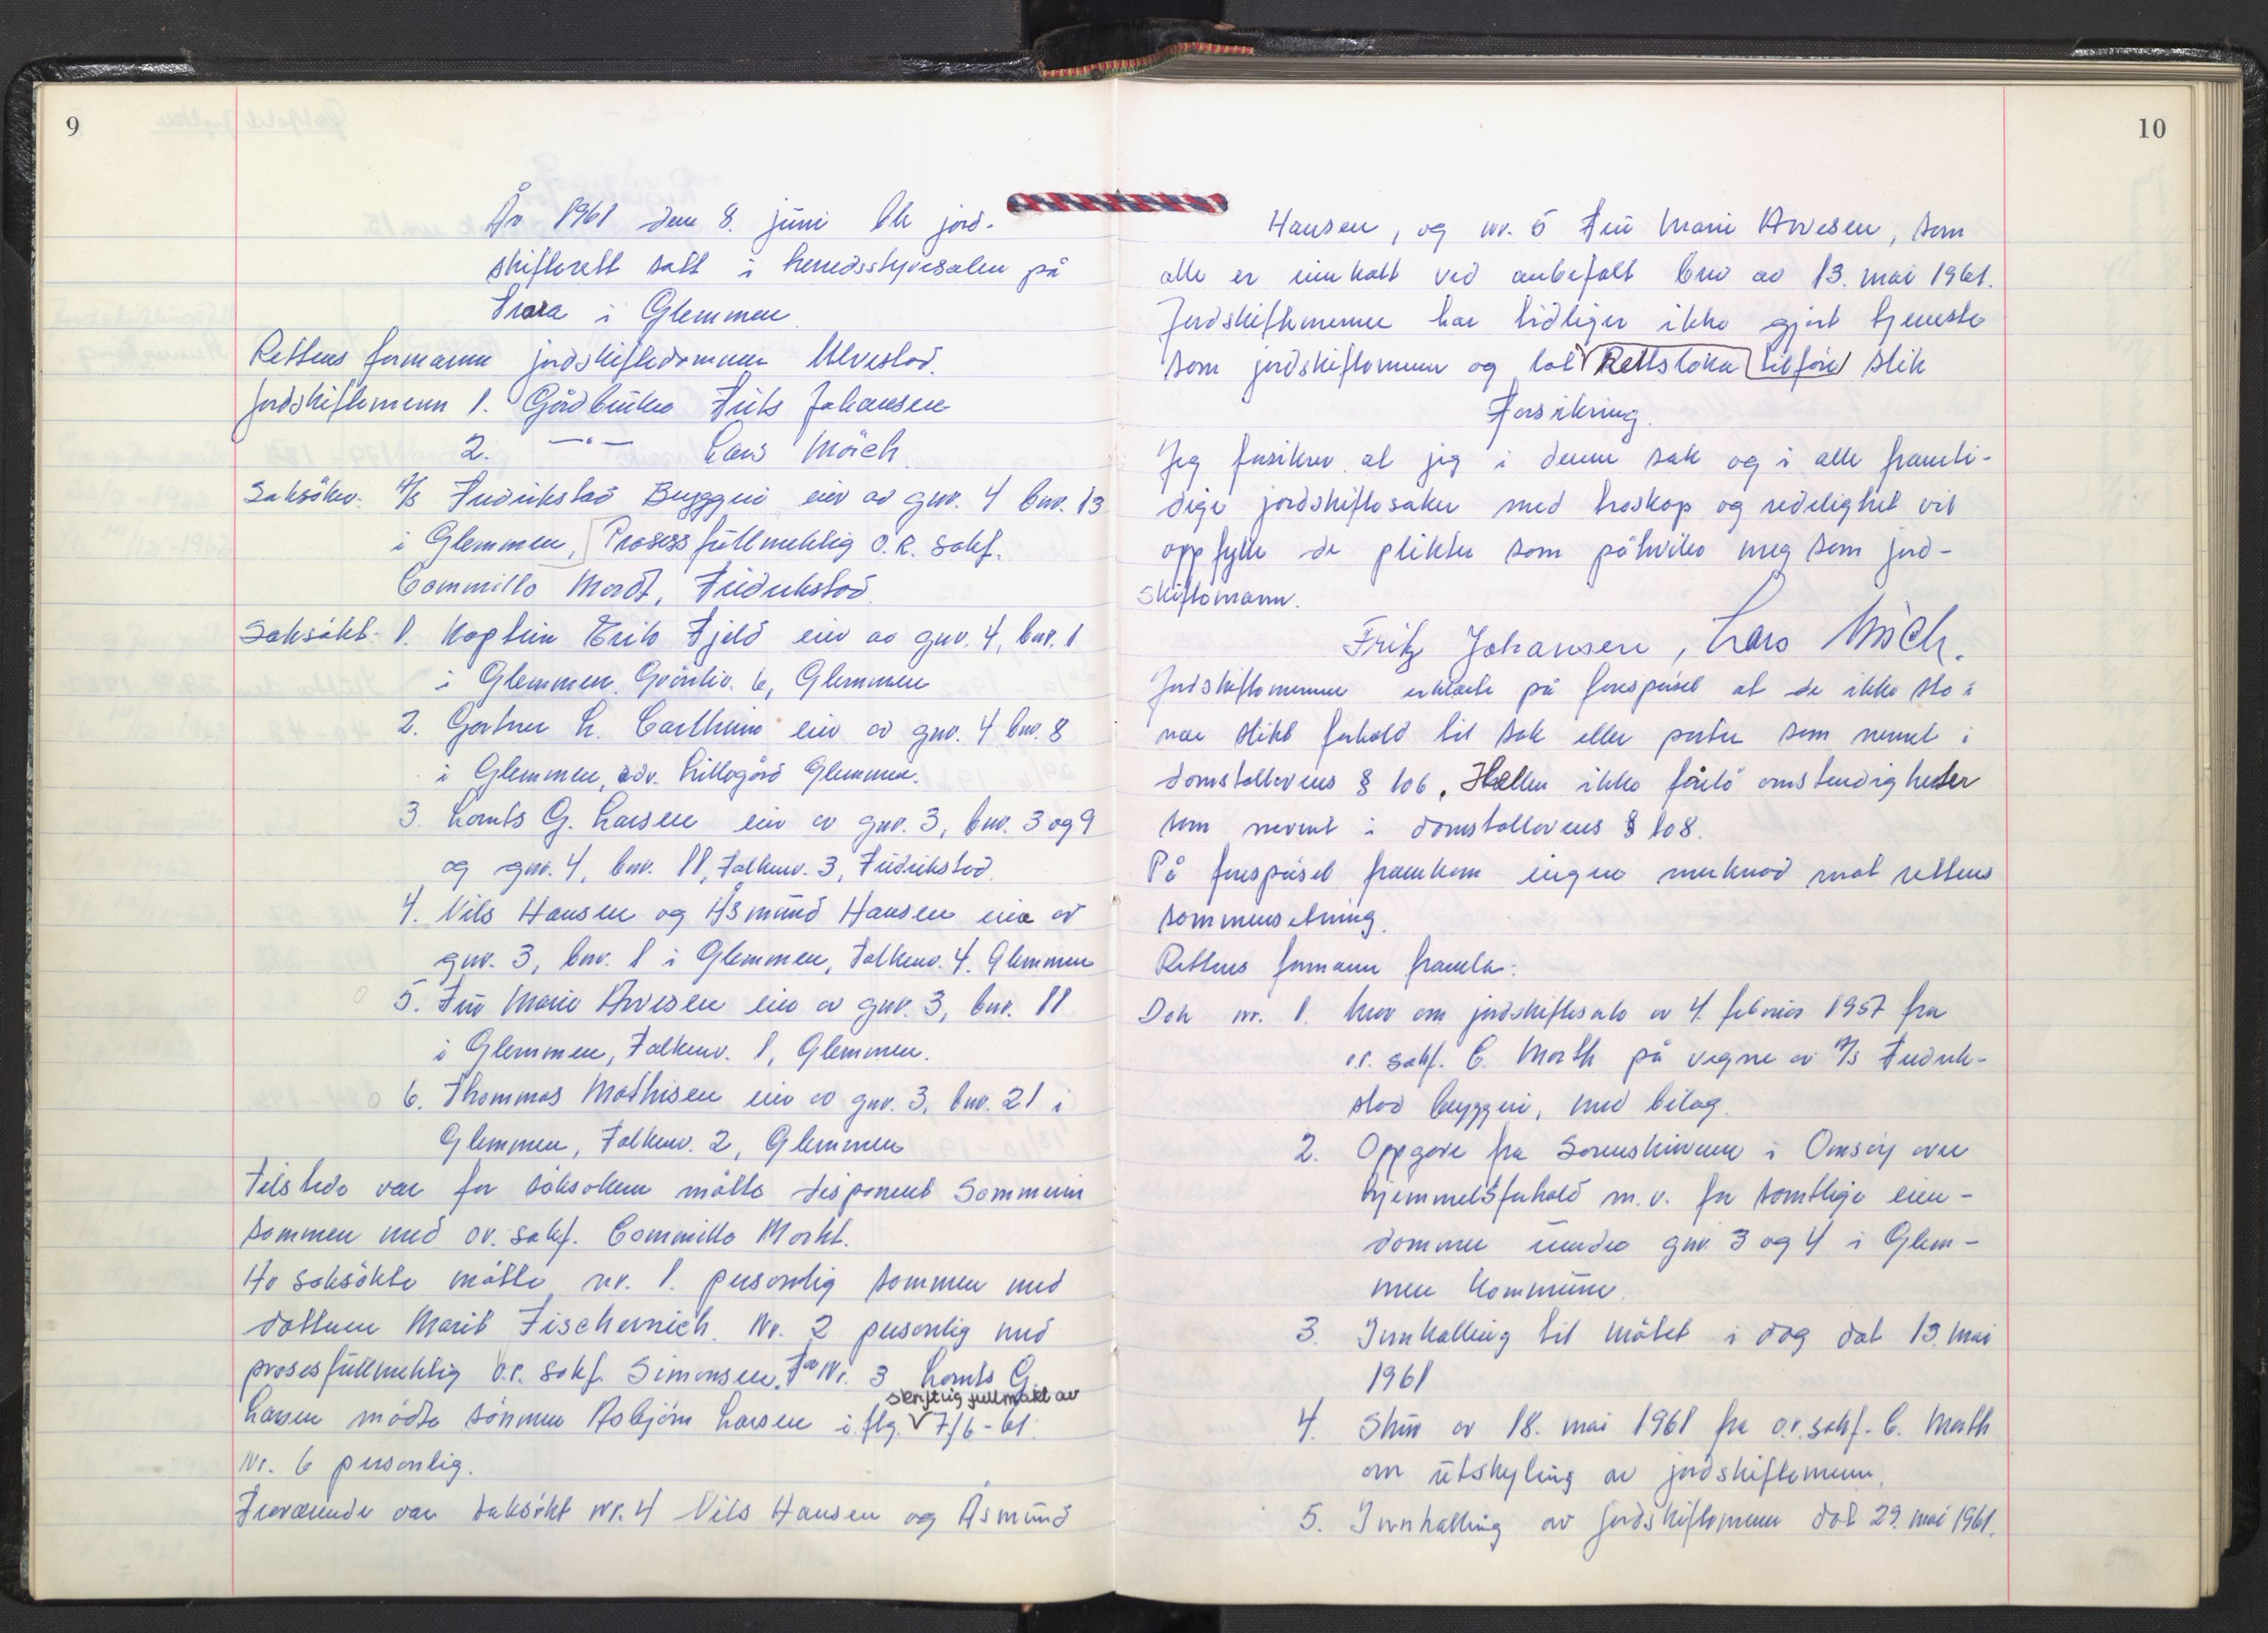 9
År 1961 den 8. juni ble jord-
skifterett satt i herredsstyresalen på
Trara i Glemmen
Rettens formann jordskiftedommer Ulvestad.
Jordskiftemenn 1. Gårdbruker Frits Johansen
2. —"— Lars Mörch
Saksöker. A/s Fredrikstad Bryggeri eier av gnr. 4 bnr. 13
i Glemmen, Prosessfullmektig O.R. sakf.
Cammillo Mordt, Fredrikstad.
Saksökt. 1. Kaptein Erik Fjeld eier av gnr. 4, bnr. 1
i Glemmen. Grönliv. 6, Glemmen
2. Gartner h. Carlheim eier av gnr. 4 bnr. 8
i Glemmen, adr. Lillegård Glemmen.
3. Lauits G. Larsen eier av gnr. 3, bnr. 3 og 9
og gnr. 4, bnr. 11, Falkenv. 3, Fredrikstad.
4. Nils Hansen og Åsmund Hansen eier av
gnr. 3, bnr. 1 i Glemmen, Falkenv. 4. Glemmen
5. Fru Marie Arvesen eier av gnr. 3, bnr. 11
i Glemmen, Falkenv. 1, Glemmen.
6. Thommas Mathisen eier av gnr. 3, bnr. 21 i
Glemmen, Falkenv. 2, Glemmen
Tilstede var for saksökeren mötte disponent
sammen med o.r. sakf. Cammillo Mordt.
Av saksökte mötte nr. 1. personlig sammen med
datteren Marit Fischernich. Nr. 2 personlig med
prosesfullmektig o.r. sakf. Simonsen. For Nr. 3 Lauits G.
skriftlig fullmakt av
Larsen mödte sönnen Asbjörn Larsen i flg. V 7/6-61.
Nr. 6 personlig.
Fraværende var saksökt nr. 4 Nils Hansen og Åsmund
10
Hansen, og nr. 5 Fru Marie Arvesen, som
alle er innkalt ved anbefalt brev av 13. mai 1961.
Jordskiftemennene har tidligere ikke gjort tjeneste
som jordskiftemenn og lot Rettsboka tilföre slik
Forsikring.
Jeg forsikrer at jeg i denne sak og i alle framti-
dige jordskiftesaker med troskap og redelighet vil
oppfylle de plikter som påhviler meg som jord-
skiftemann.
Fritz Johansen, Lars Mörch.
Jordskiftemennene erklærte på forespörsel at de ikke sto i
noe slikt forhold til sak eller parter som nevnt i
domstollovens § 106. Heller ikke forelå omstendigheter
som nevnt i domstollovens § 108.
På forespörsel framkom ingen merknad mot rettens
sammensetning.
Rettens formann framla:
Dok nr. 1. Krav om jordskiftesak av 4. februar 1957 fra
o.r. sakf. C. Morth på vegne av A/s Fredrik-
stad bryggeri, med bilag.
2. Oppgave fra Sorenskriveren i Onsöy over
hjemmelsforhold m.v. for samtlige eien-
dommer under gnr. 3 og 4 i Glem-
men kommune.
3. Innkalling til mötet i dag dat 13. mai
1961
4. Skriv av 18. mai 1961 fra o.r. sakf. C. Morth
om utskyting av jordskiftemenn.
5. Innkalling av jordskiftemenn dat 29. mai 1961.